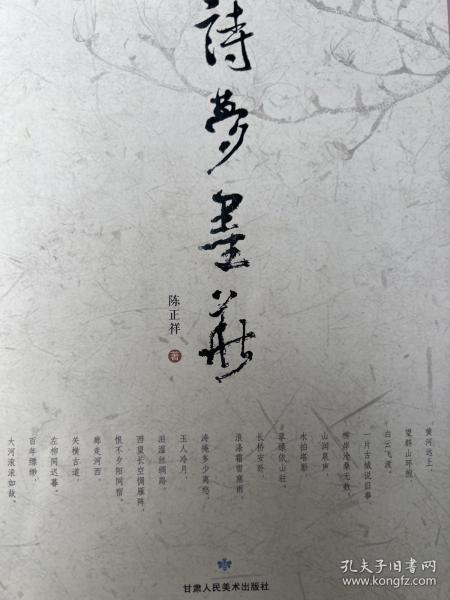 詩夢墨華
陈正祥
著
黄河远上,
望群山环抱,
白云飞渡。
一片古城说旧事,
柳岸沧桑无数。
山涧泉声,
水拍塔影,
翠绿依山驻。
长桥安卧,
浪涤霜雪寒雨。
涛掩多少离愁,
玉人冷月,
泪湿丝绸路。
西望长空惆雁阵,
恨不夕阳同宿。
廊走河西,
关横古道,
左柳同迟暮。
百年缥缈,
大河滚滚如故。
甘肃人民美术出版社
孔夫子旧书网
www.kongfz.com